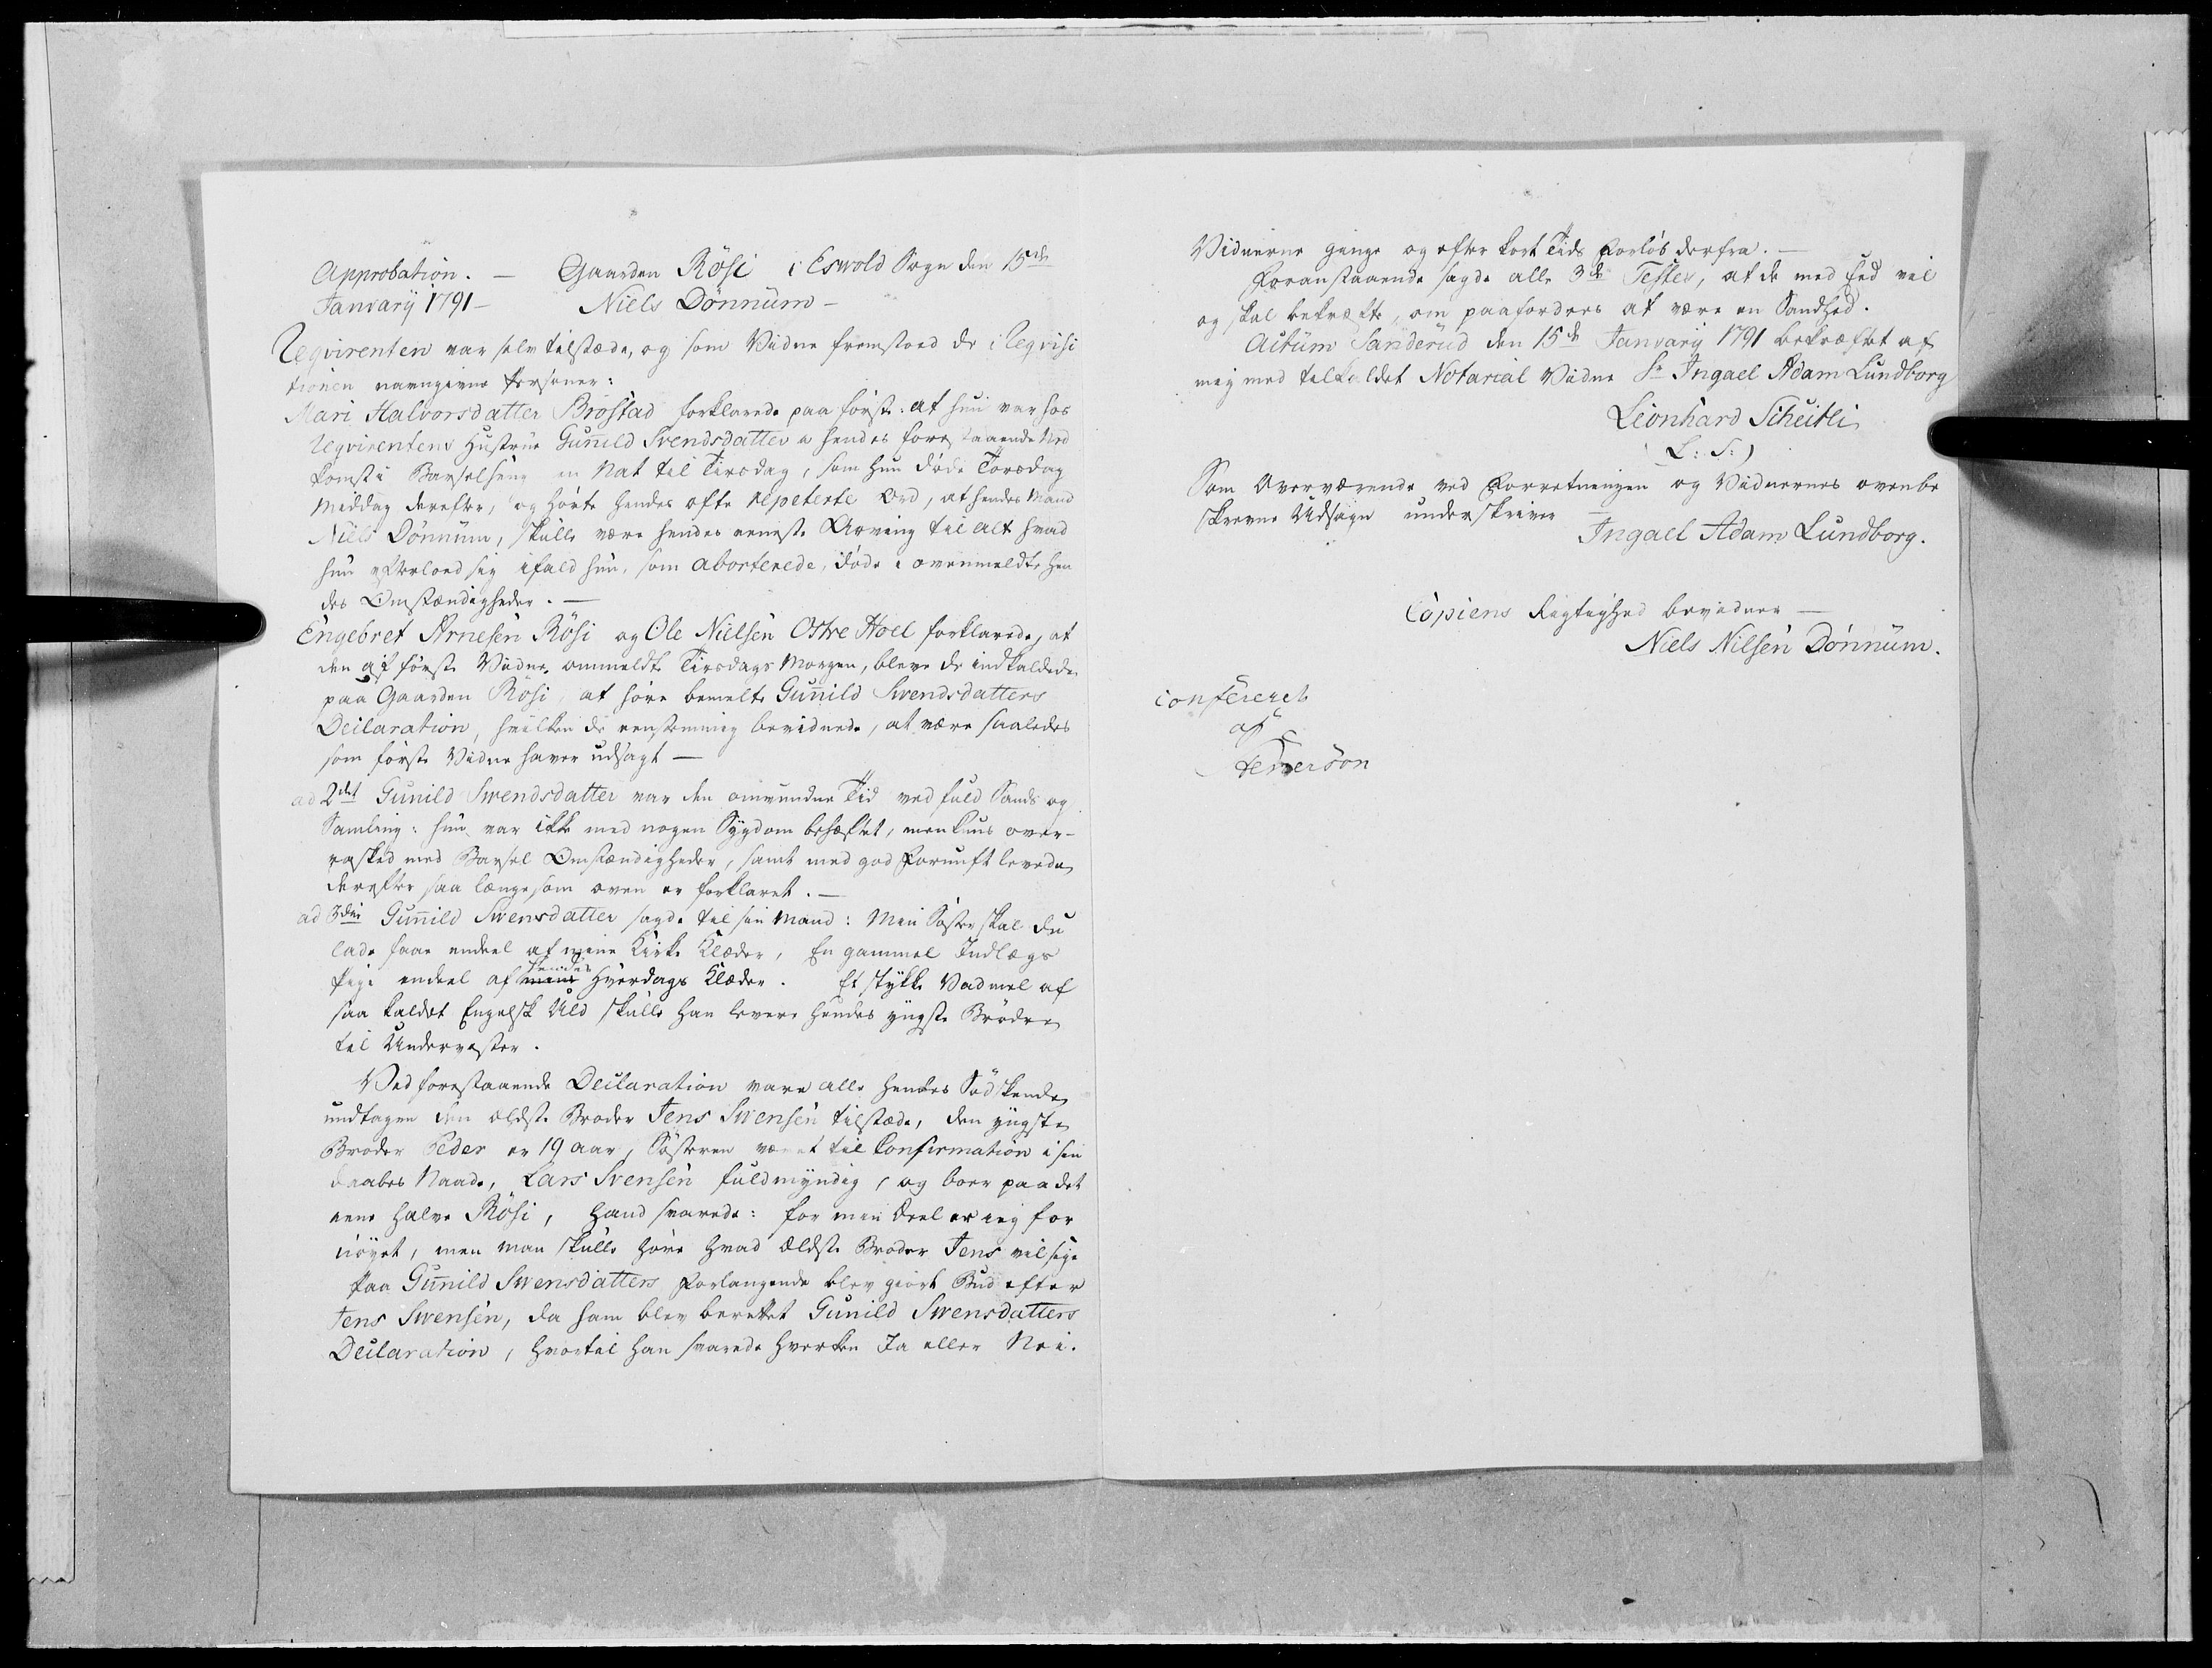 Approbation. — Gaarden Rösi i Eswold Sogn den 15de
Janvarij 1791 — Niels Dönnüm —
Reqvirenten var selv tilstæde, og som Vidne fremstoed de i Reqvisi
tionen navngivne Personer:
Mari Halvorsdatter Bröstad forklarede paa første: at hun var hos
Reqvirentens Hustrue Gunild Svendsdatter i hendes forestaaende Ned
komst i Barselseng en Nat til Tirsdag, som hun døde Torsdag
Middag derefter, og hørte hendes ofte repeterte Ord, at hendes Mand
Niels Dönnüm, skulle være hendes eeneste Arving til alt hvad
hun efterloed sig ifald hun, som aborterede, døde i ovenmeldte hen
des Omstændigheder. —
Engebret Arnesen Rösi og Ole Nielsen Ostre Hoel forklarede, at
den af første Vidne ommeldte Tirsdags Morgen, bleve de indkaldede
paa Gaarden Rösi, at høre bemelte Gunild Svendsdatters
Declaration, hvilken de eenstemmig bevidnede, at være saaledes
som første Vidne haver udsagt —
ad 2det Gunild Svendsdatter var den omvundne Tid ved fuld Sands og
Samling: hun var ikke med nogen Sygdom behæftet, men kuns over-
rasked med Barsel Omstændigheder, samt med god Fornuft levede
derefter saa længe, som oven er forklaret. —
ad 3die Gunnild Svensdatter sagde til sin Mand: Min Søster skal du
lade faae endeel af mine Kirke Klæder, En gammel Indlægs
Pige endeel af hendes Hverdags Klæder. Et stykke Vadmel af
saa kaldet Engelsk Uld skulle han levere hendes yngste Brødre
til Undervester.
Ved forestaaende Declaration vare alle hendes Sødskende
undtagen den ældste Broder Jens Svensen tilstæde, den yngste
Broder Peder er 19 aar, Søsteren været til Confirmation i sin
daabes Naade, Lars Svensen fuldmyndig, og boer paa det
eene halve Rösi, hand svarede: for min Deel er ieg for
nöyet, men man skulle høre hvad ældste Broder Jens vil sige
Paa Gunild Svensdatters Forlangende blev giort Bud efter
Jens Svensen, da ham blev berettet Gunild Svensdatters
Declaration, hvortil han svarede hverken Ja eller Nei.
Vidnerne ginge og efter kort Tids Forløb derfra. —
Foranstaaende sagde alle 3de Testes, at de med Eed vil
og skal bekræfte, om paafordres at være en Sandhed.
Actum Sanderud den 15de Janvarij 1791 bekræftet af
mig med tilkaldet Notarial Vidne Sr Ingael Adam Lundborg
Leonhard Scheitli
(L: S:)
Som Overværende ved Forretningen og Vidnernes ovenbe
skrevne Udsagn underskriver —
Ingael Adam Lundborg.
Copiens Rigtighed bevidner —
Niels Nilsen Dönnüm.
confereret
af